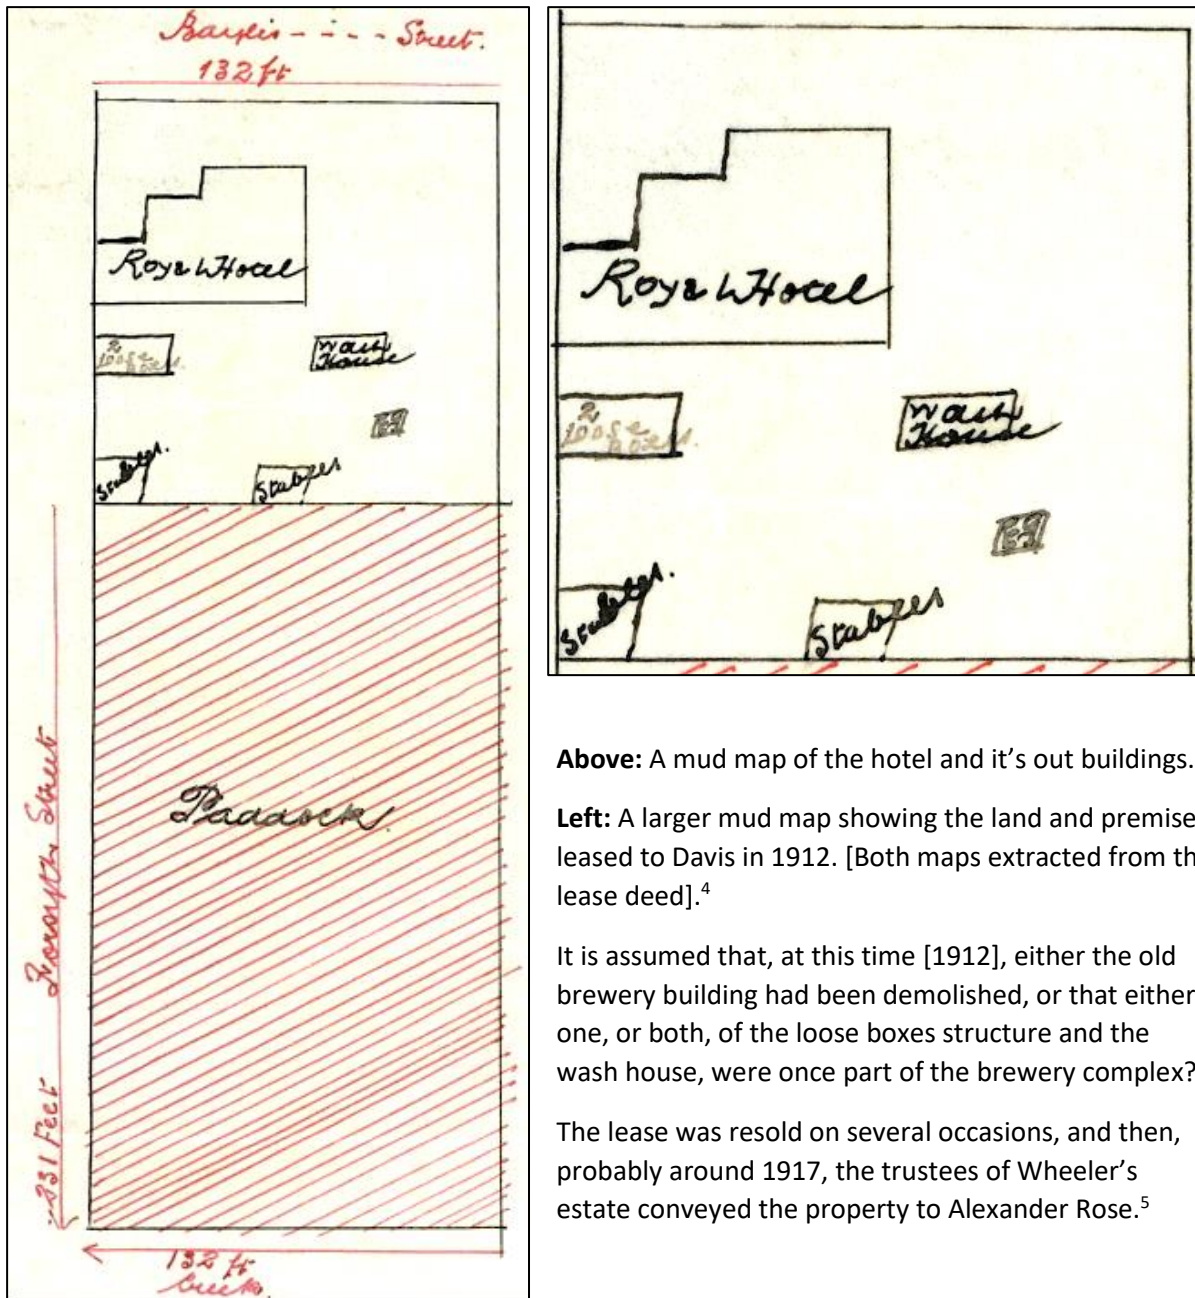 Bayliss - - - - Street.
132 ft
Royal Hotel
2
loose
boxes.
Wash
House
Stables.
Stables
Paddock
Forsyth Street
231 Feet
132 ft
Royal Hotel
2
loose
boxes.
Wash
House
Stables.
Stables
Above: A mud map of the hotel and it’s out buildings.
Left: A larger mud map showing the land and premise
leased to Davis in 1912. [Both maps extracted from th
lease deed].⁴
It is assumed that, at this time [1912], either the old
brewery building had been demolished, or that either
one, or both, of the loose boxes structure and the
wash house, were once part of the brewery complex?
The lease was resold on several occasions, and then,
probably around 1917, the trustees of Wheeler’s
estate conveyed the property to Alexander Rose.⁵